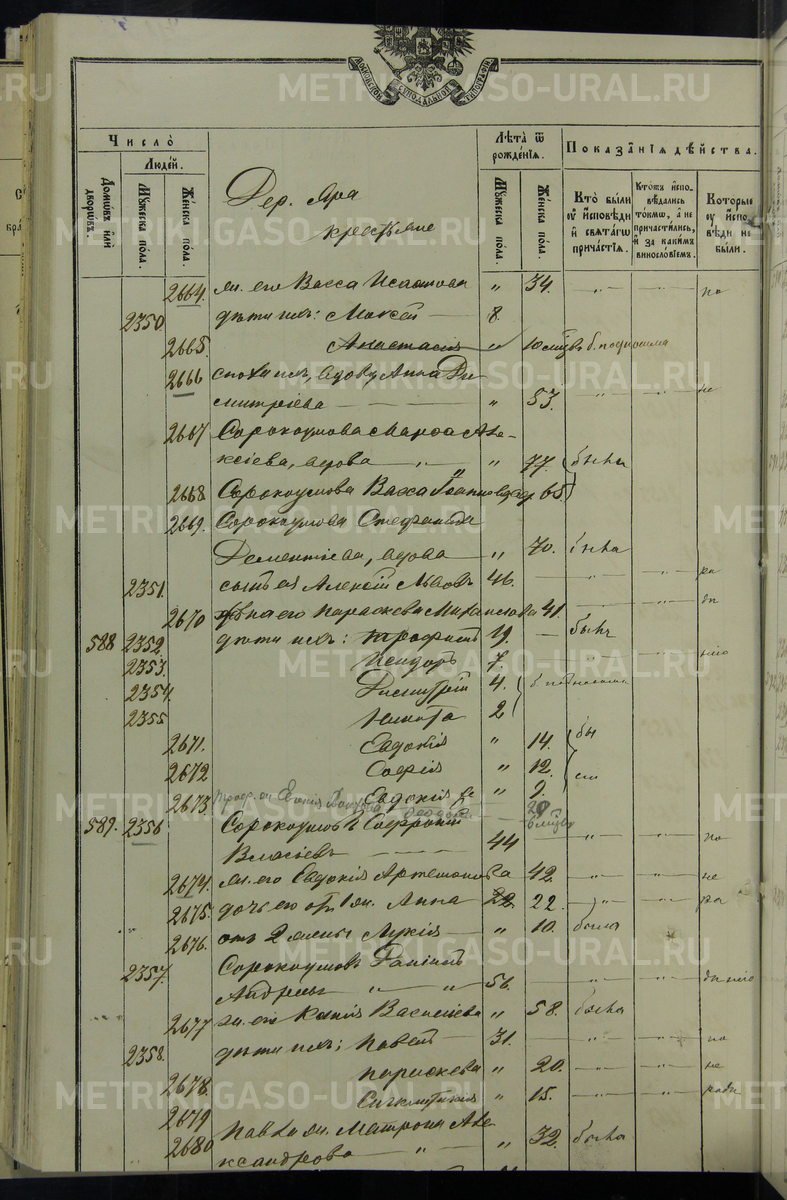 METRIKI.GASO-URAL.RU
МОСКОВСКОЙ СѴНОДАЛЬНОЙ ТИПОГРАФІИ
Число̀
Людéй.
Домѡ́въ и҆лѝ дворѡ́въ.
Мꙋ́жеска по́ла.
Же́нска по́ла.
Лѣ́та ѿ рожде́нїѧ.
Мꙋ́жеска по́ла.
Же́нска по́ла.
Показа̑нїѧ дѣ́йства.
Кто̀ бы́ли ᲂу҆ и҆сповѣ́ди и҆ свѧта́гѡ прича́стїѧ.
Кто́жъ и҆сповѣ́дались то́кмѡ, а҆ не причасти́лись, и҆ за каки́мъ винослові́емъ.
Кото́рые ᲂу҆ и҆сповѣ́ди не бы́ли.
Дер. Яра
крестьяне
2664. ж. его Васса Исаакова " 34. — " — — " — по
2350. дѣти ихъ: Моисей — 8.
2665. Анастасія " 10 мцвъ
2666 вдова Анна Ди-
митріева — " 53. — " — — " — не
2667 Сорокоумова Марѳа Але-
ксіева, вдова — " 77. были
2668 Сорокоумова Васса Іоаннова 65
2669. Сорокоумова Стефанида
Дементіева, вдова — " 70. была
2351. сынъ ея Алексій Львовъ 46. — " — — " — ра
2670 жена его Параскева Михаилова 41. — " — дѣ
588 2352. дѣти ихъ: Трофимъ 19. — былъ
2353. Исидоръ 7. — " — нію
2354. Димитрій 4.
2355 Никита 2
2671. Евдокія " 14. бы
2672 Софія " 12. ли
2673. Евдокія " 9.
589. 2356 Сорокоумовъ Софроній
Власіевъ — 44 — " — — " — по
2674. ж. его Евдокія Артемонова 42. — " — — " — не
2675. дочь его отъ 1 ж. Анна 22. 22. — " — — " — ра
2676. отъ 2 жены Лукія — " 10. была
2357. Сорокоумовъ Даніилъ
Андреевъ " " 56. — " — — " — дѣнію
2677 ж. его Ксенія Василіева " 58. была
2358. дѣти ихъ: Павелъ — 31. — " — — " — по
2678. Параскева " 20. — " — — " — не
2679 Синклитикія " 15. — " — — " — радѣ
2680 Павла ж. Матрона Але-
ксандрова — " — " 32. была